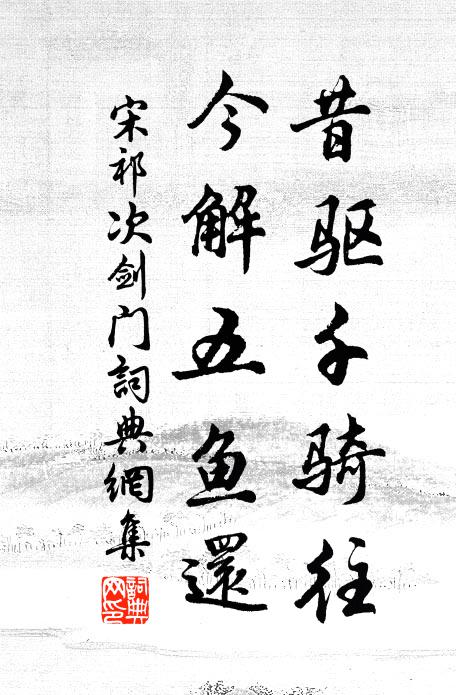 昔驱千骑往
今解五鱼還
宋祁次剑门詞典網集
詞典网印